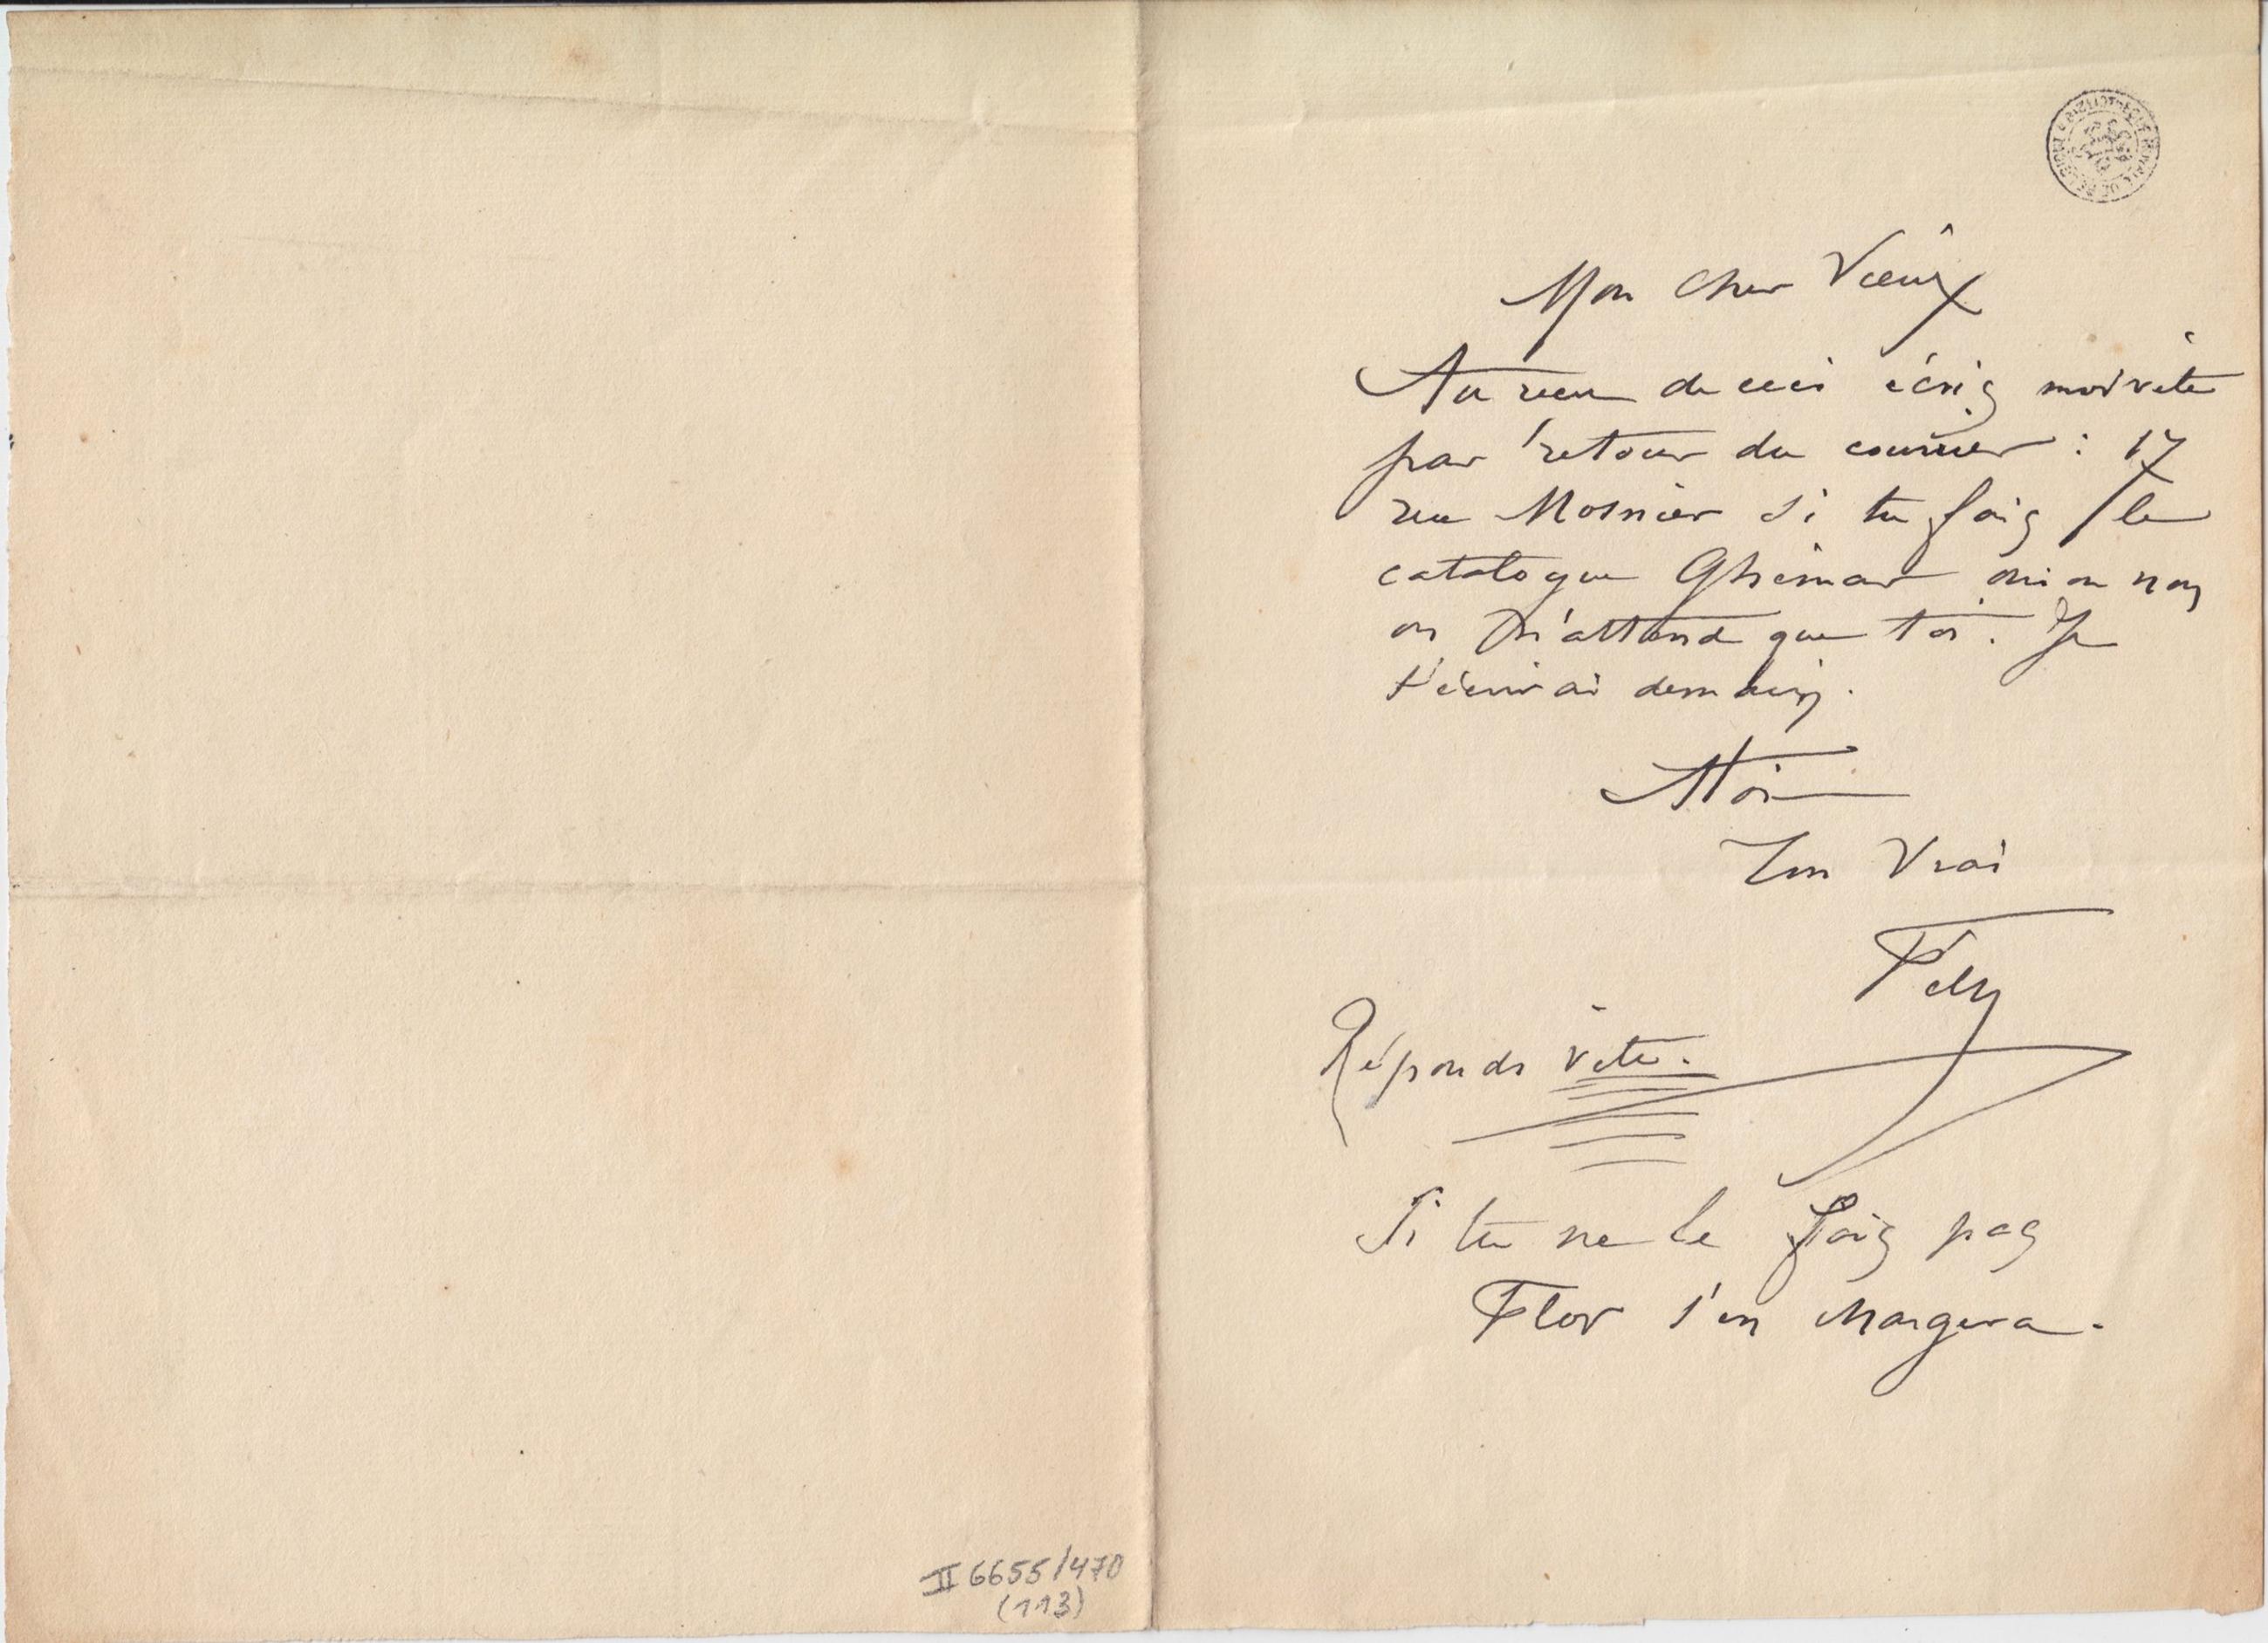 Mon cher Vieux
Au reçu de ceci écris moi vite
par retour du courrier : 17
rue Mosnier si tu fais le
catalogue Ghémar oui ou non
on n'attend que toi. Je
t'écrirai demain.
A toi
Ton Vrai
Fély
Réponds vite.
Si tu ne le fais pas
Flor s'en chargera.
II 6655/470
(113)